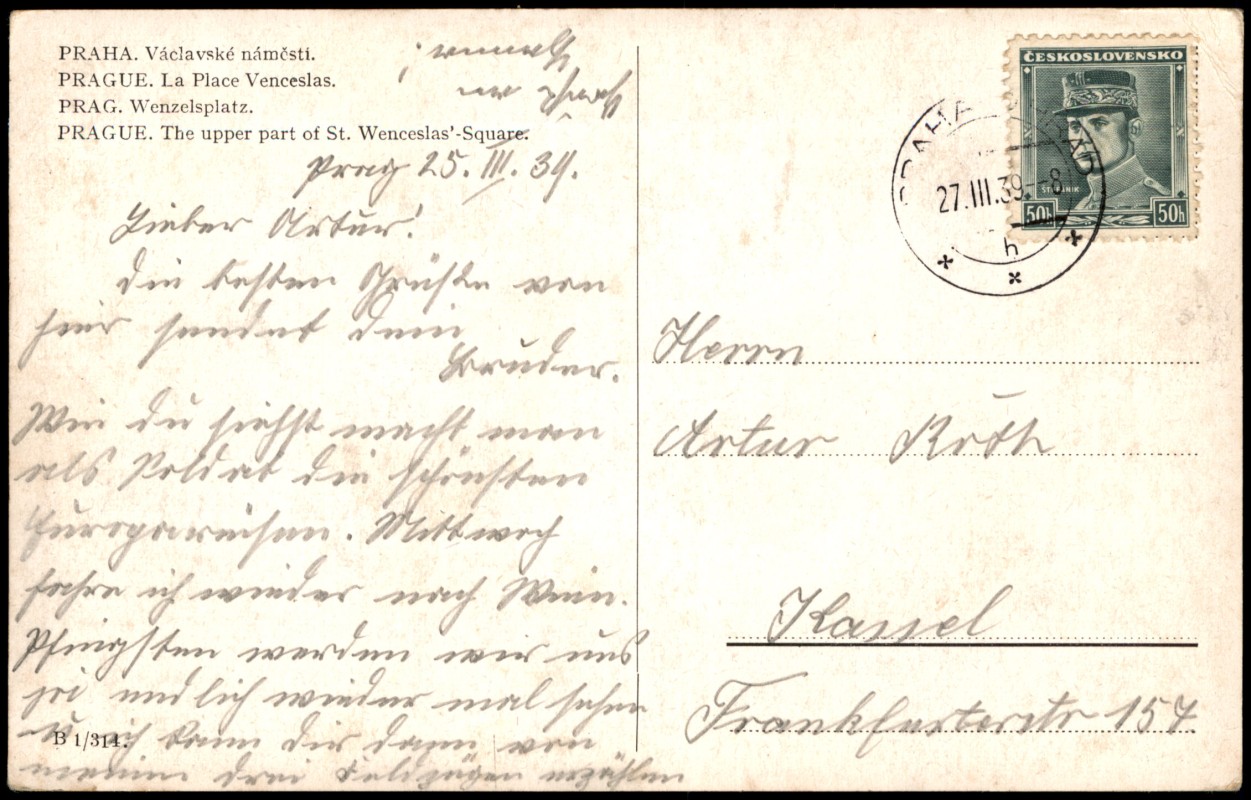 PRAHA. Václavské náměsti.
PRAGUE. La Place Venceslas.
PRAG. Wenzelsplatz.
PRAGUE. The upper part of St. Wenceslas'-Square.
Prag 25. III. 39.
Lieber Artur!
Die besten Grüße von
hier sendet dein
Bruder.
Wie du siehst macht man
als Soldat die schönsten
Europareisen. Mittwoch
fahre ich wieder nach Wien.
Pfingsten werden wir uns
ja endlich wieder mal sehen
ich kann dir dann von
meinen drei Feldzügen erzählen
B 1/311.
ČESKOSLOVENSKO
ŠTEFÁNIK
50h 50h
PRAHA
27.III.39.-8
h
Herrn
Artur Röth
Kassel
Frankfurterstr 157.